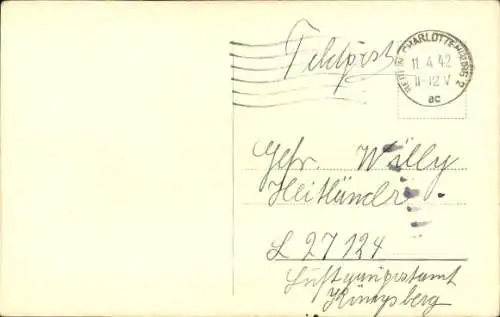 Feldpost
BERLIN-CHARLOTTENBURG 2
11.4.42
11-12 V
ac
Gefr. Willy
Heitländer
L 27124
Luftgaupostamt
Königsberg